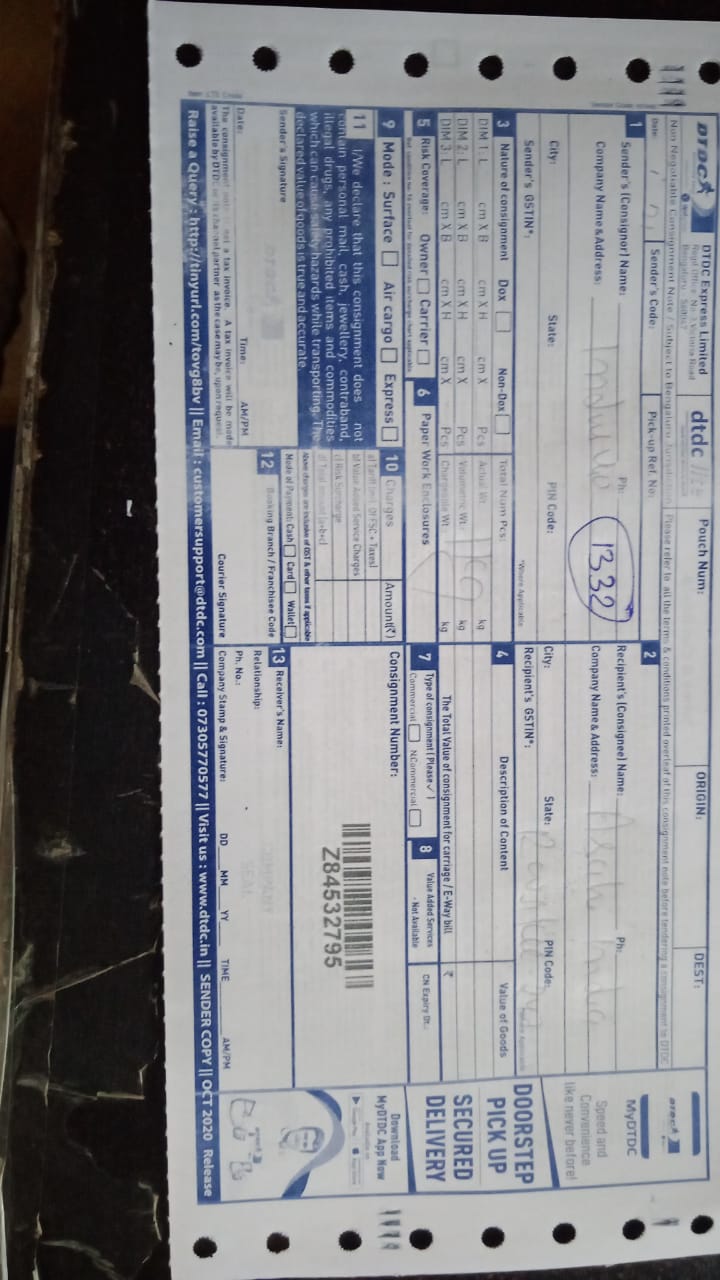 DTDC
DTDC Express Limited
Regd Office: No. 3, Victoria Road
Bengaluru - 560047
dtdc
Pouch Num:
ORIGIN:
DEST:
Non-Negotiable Consignment Note / Subject to Bengaluru Jurisdiction. Please refer to all the terms & conditions printed overleaf of this consignment note before tendering a consignment to DTDC
Date:
Sender's Code:
Pick-up Ref. No:
1 Sender's (Consignor) Name:
Ph:
Company Name & Address:
1332
City:
State:
PIN Code:
Sender's GSTIN*:
*Where Applicable
2 Recipient's (Consignee) Name:
Ph:
Company Name & Address:
City:
State:
PIN Code:
Recipient's GSTIN*:
*Where Applicable
3 Nature of consignment Dox Non-Dox Total Num Pcs:
DIM 1: L cm X B cm X H cm X Pcs Actual Wt: kg
DIM 2: L cm X B cm X H cm X Pcs Volumetric Wt: kg
DIM 3: L cm X B cm X H cm X Pcs Chargeable Wt: kg
4 Description of Content Value of Goods
The Total Value of consignment for carriage / E-Way bill ₹
5 Risk Coverage: Owner Carrier
6 Paper Work Enclosures
7 Type of consignment (Please ✓)
Commercial N.Commercial
8 Value Added Services
- Not Available
CN Expiry Dt.:
9 Mode: Surface Air cargo Express
10 Charges Amount(₹)
a) Tariff (incl Of FSC + Taxes)
b) Value Added Service Charges
c) Risk Surcharge
d) Total amount (a+b+c)
Above charges are inclusive of GST & other taxes if applicable
Mode of Payment: Cash Card Wallet
Consignment Number:
Z84532795
11 I/We declare that this consignment does not
contain personal mail, cash, jewellery, contraband,
illegal drugs, any prohibited items and commodities
which can cause safety hazards while transporting. The
declared value of goods is true and accurate.
Sender's Signature
Date: Time: AM/PM
The consignment note is not a tax invoice. A tax invoice will be made
available by DTDC or its channel partner as the case may be, upon request.
12 Booking Branch / Franchisee Code
Courier Signature
13 Receiver's Name:
Relationship:
Ph. No.:
Company Stamp & Signature:
COMPANY
SEAL
DD MM YY TIME AM/PM
MyDTDC
Speed and
Convenience
like never before!
DOORSTEP
PICK UP
SECURED
DELIVERY
Download
MyDTDC App Now
Raise a Query : http://tinyurl.com/tovg8bv || Email : customersupport@dtdc.com || Call : 07305770577 || Visit us : www.dtdc.in || SENDER COPY || OCT 2020 Release